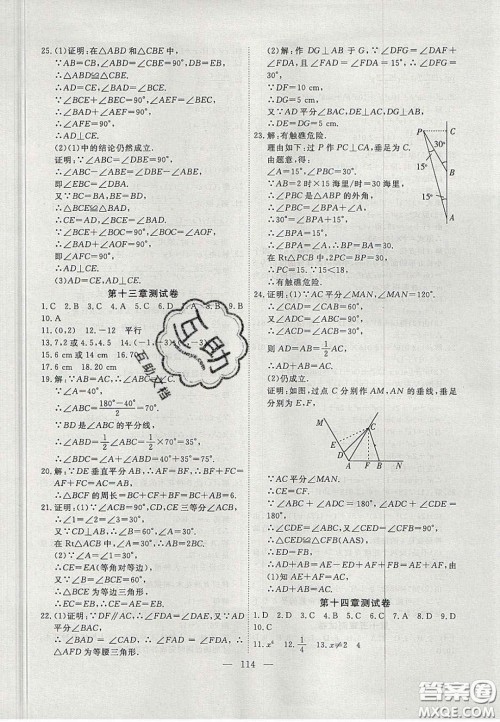 25.(1)证明:在△ABD和△CBE中,
∵AB=CB,∠ABD=∠CBE=90°,BD=BE,
∴△ABD≌△CBE.
∴AD=CE,∠BAD=∠BCE.
∵∠BCE+∠BEC=90°,
∴∠BAD+∠BEC=90°.
∴∠AFE=90°.
∴AD⊥CE.
(2)(1)中的结论仍然成立.
证明:∵∠ABC=∠DBE=90°,
∴∠ABC-∠ABE=∠DBE-∠ABE,
即∠CBE=∠ABD.
∵BC=BA,BE=BD,
∴△CBE≌△ABD.
∴CE=AD,∠BCE=∠BAD.
∵∠BCE+∠BOC=90°,∠BOC=∠AOF,
∴∠BCE+∠AOF=90°.
即∠BAD+∠AOF=90°.
∴∠AFC=90°.∴AD⊥CE.
(3)AD=CE,AD⊥CE.
第十三章测试卷
1.C 2.B 3.C 4.C 5.D 8.B 9.B
10.A
11.(0,2) 12.-12 平行
13.7,2 或 4.5,4.5
15.6 cm 或 14 cm
17.6 cm 18.20 cm
19.解:∵AB=AC,∴∠ABC=∠C.
∵∠A=40°,
∴∠ABC=(180°-40°)/2=70°.
∵BD是∠ABC的平分线,
∴∠DBC=1/2∠ABC=1/2×70°=35°.
20.解:∵DE垂直平分AB,∴AF=BF.∴BF+FC=
AF+FC=AC.
∴△BCF的周长=BC+CF+BF=BC+AC.
21.(1)证明:∵∠ACB=90°,CD,CE三等分∠ACB,
∴∠1=∠2=∠3=30°.
又∵CD⊥AB,∴∠B=60°.∴∠A=30°.
在Rt△ACB中,∵∠A=30°,∴AB=2BC.
(2)∵∠A=∠1=30°,
∴CE=EA(等角对等边).
又∵∠B=∠BCE=60°,
∴△BCE为等边三角形.
∴CE=EA=EB.
22.(1)证明:∵∠ACB=90°,AC=BC,AD平分
∠BAC,
∴∠B=∠CAB=45°,∠CAD=∠BAD=22.5°.
∵∠ADE=90°,∴∠E=67.5°.
∴∠ABE=180°-45°-67.5°=67.5°.
∴△ABE为等腰三角形.
(2)解:作DG⊥AB于G,∵∠DFG=∠DAF+
∠FDA=15°+15°=30°,DF=AF,∴∠DFG=
30°,
∵DF=10 cm,
∴DG=5 cm.
又∵AD平分∠BAC,DE⊥AC,DG⊥AB,
∴DE=DG=5 cm.
23.解:有触礁危险.
理由如下:过P作PC⊥CA,垂足为C.
由题意,得:
∠A=15°,∠PBC=30°.
∵AB=2时×15海里/时=30海里,
∵∠PBC是△PBA的外角,
∴∠PBC=∠BPA+∠A=30°.
∵∠A=15°,
∴∠BPA=15°.
∴∠A=∠BPA.
∴PB=AB=30.
在Rt△PCB中,∠PBC=30°,
∴PC=15.∵15<18.
∴有触礁危险.
P C
30°
B
15°
15°
A
24.证明:(1)∵AC平分∠MAN,∠MAN=120°.
∴∠CAB=∠CAD=60°.
∵∠ABC=∠ADC=90°,
∴∠ACB=∠ACD=30°,
则AD=AB=1/2AC.
∴AB+AD=AC.
(2)仍成立.
证明:如图,过点C分别作AM,AN的垂线,垂足
分别为E,F.
M
C
D
E
A F B N
∵AC平分∠MAN,
∴CE=CF.
∵∠ABC+∠ADC=180°,∠ADC+∠CDE=
180°,
∴∠CDE=∠ABC.
∵∠CED=∠CFB=90°,
∴△CED≌△CFB(AAS),
∴CD=CB,ED=BF.
∴AD+AB=AE-ED+AF+FB=AE+AF.
由(1)知AE+AF=AC,
∴AD+AB=AC.
第十四章测试卷
10.C
11.x⁴ 12.1/4 13.x≠2 4
114
互助
互助文档
答案圈
MXQE.COM